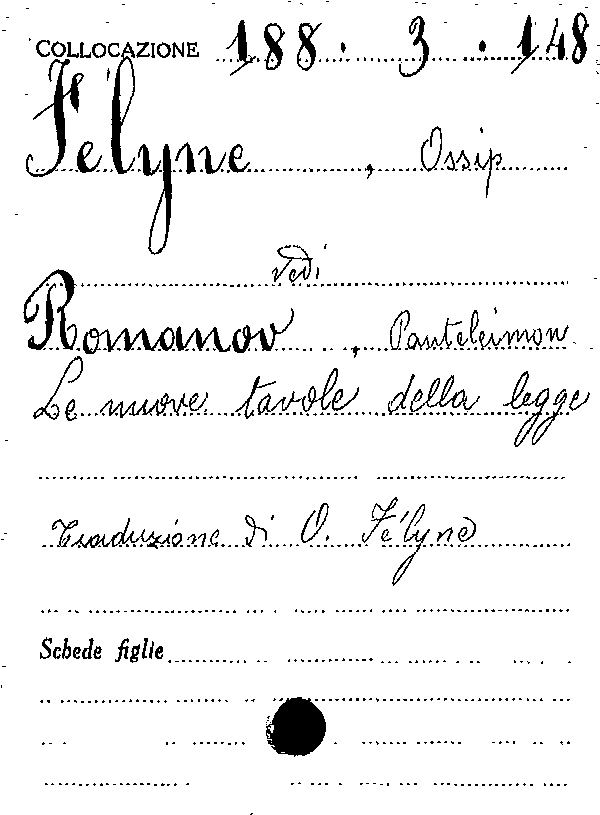 COLLOCAZIONE 188. 3. 148
Félyne, Ossip
vedi
Romanov, Panteleimon
Le nuove tavole della legge
Traduzione di O. Félyne
Schede figlie